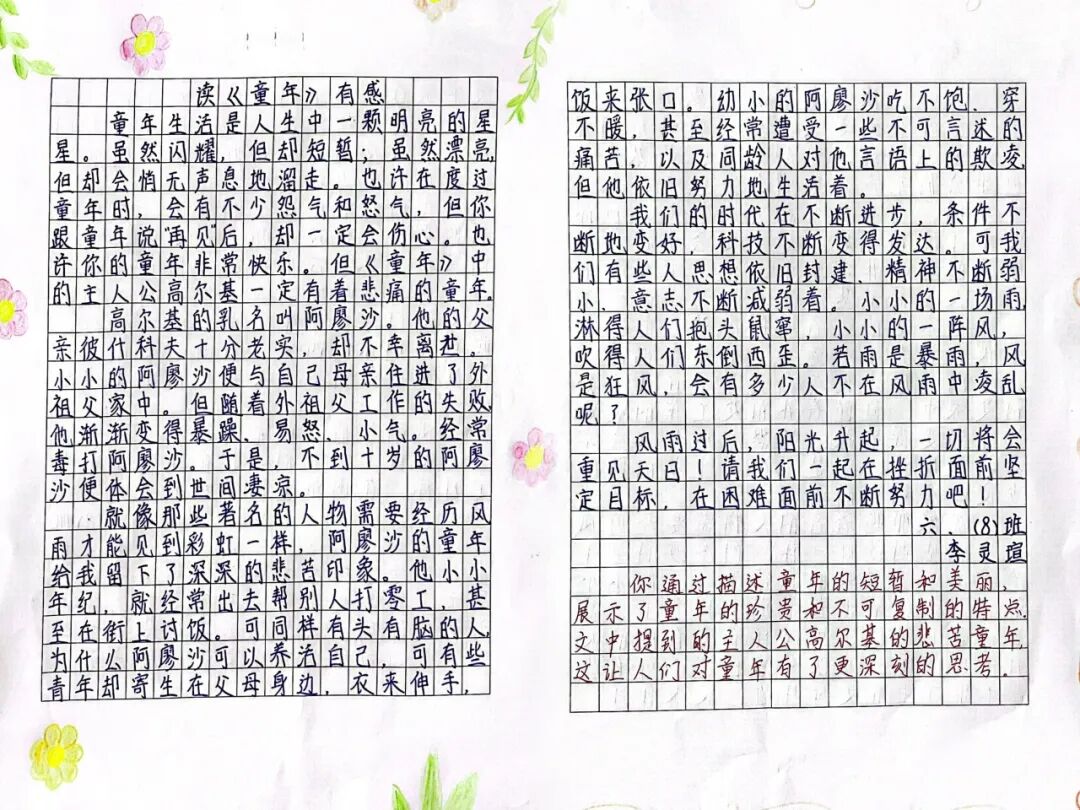 读《童年》有感
童年生活是人生中一颗明亮的星
星。虽然闪耀，但却短暂；虽然漂亮，
但却会悄无声息地溜走。也许在度过
童年时，会有不少怨气和怒气，但你
跟童年说“再见”后，却一定会伤心。也
许你的童年非常快乐。但《童年》中
的主人公高尔基一定有着悲痛的童年。
高尔基的乳名叫阿廖沙。他的父
亲彼什科夫十分老实，却不幸离世。
小小的阿廖沙便与自己母亲住进了外
祖父家中。但随着外祖父工作的失败，
他渐渐变得暴躁、易怒、小气。经常
毒打阿廖沙。于是，不到十岁的阿廖
沙便体会到世间凄凉。
就像那些著名的人物需要经历风
雨才能见到彩虹一样，阿廖沙的童年
给我留下了深深的悲苦印象。他小小
年纪，就经常出去帮别人打零工，甚
至在街上讨饭。可同样有头有脑的人，
为什么阿廖沙可以养活自己，可有些
青年却寄生在父母身边，衣来伸手，
饭来张口。幼小的阿廖沙吃不饱、穿
不暖，甚至经常遭受一些不可言述的
痛苦，以及同龄人对他言语上的欺凌，
但他依旧努力地生活着。
我们的时代在不断进步，条件不
断地变好，科技不断变得发达。可我
们有些人思想依旧封建、精神不断弱
小、意志不断减弱着。小小的一场雨，
淋得人们抱头鼠窜，小小的一阵风，
吹得人们东倒西歪。若雨是暴雨，风
是狂风，会有多少人不在风雨中凌乱
呢？
风雨过后，阳光升起，一切将会
重见天日！请我们一起在挫折面前坚
定目标，在困难面前不断努力吧！
六、(8)班
李灵瑄
你通过描述童年的短暂和美丽，
展示了童年的珍贵和不可复制的特点.
文中提到的主人公高尔基的悲苦童年，
这让人们对童年有了更深刻的思考。